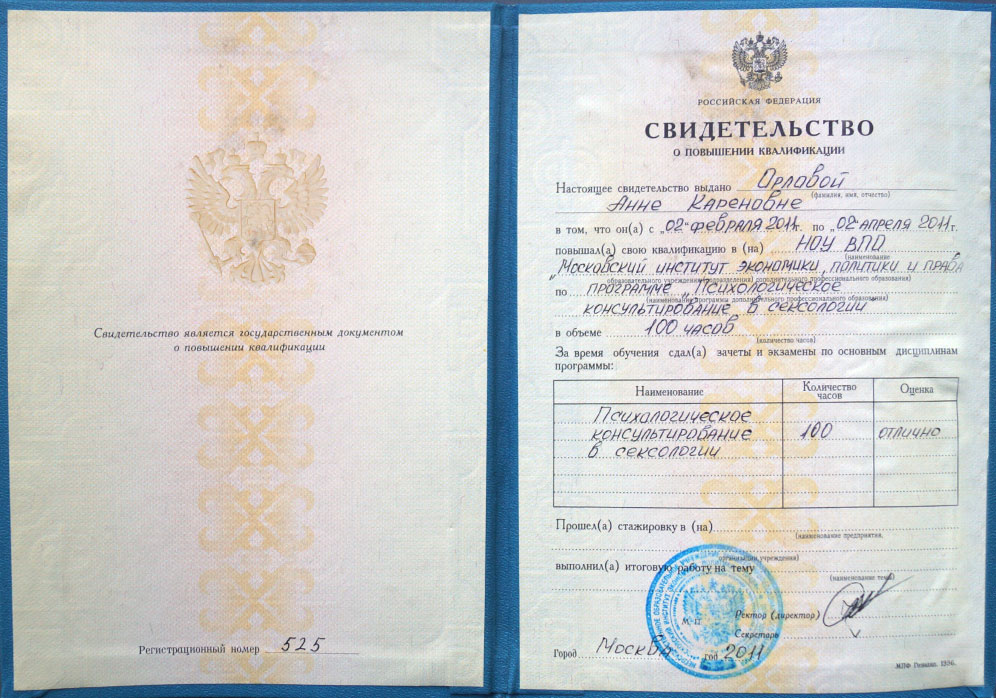 Свидетельство является государственным документом
о повышении квалификации
Регистрационный номер 525
РОССИЙСКАЯ ФЕДЕРАЦИЯ
СВИДЕТЕЛЬСТВО
О ПОВЫШЕНИИ КВАЛИФИКАЦИИ
Настоящее свидетельство выдано Орловой
(фамилия, имя, отчество)
Анне Кареновне
в том, что он(а) с „02“ февраля 2011г. по „02“ апреля 2011г.
повышал(а) свою квалификацию в (на) НОУ ВПО
(наименование
„Московский институт экономики, политики и права“
образовательного учреждения (подразделения) дополнительного профессионального образования)
по программе „Психологическое
(наименование программы дополнительного профессионального образования)
консультирование в сексологии“
в объеме 100 часов
(количество часов)
За время обучения сдал(а) зачеты и экзамены по основным дисциплинам
программы:
Наименование Количество часов Оценка
Психологическое
консультирование 100 отлично
в сексологии
Прошел(а) стажировку в (на)
(наименование предприятия,
организации учреждения)
выполнил(а) итоговую работу на тему
(наименование темы)
М. П. Ректор (директор)
Секретарь
Город Москва год 2011
МПФ Гознака. 1996.